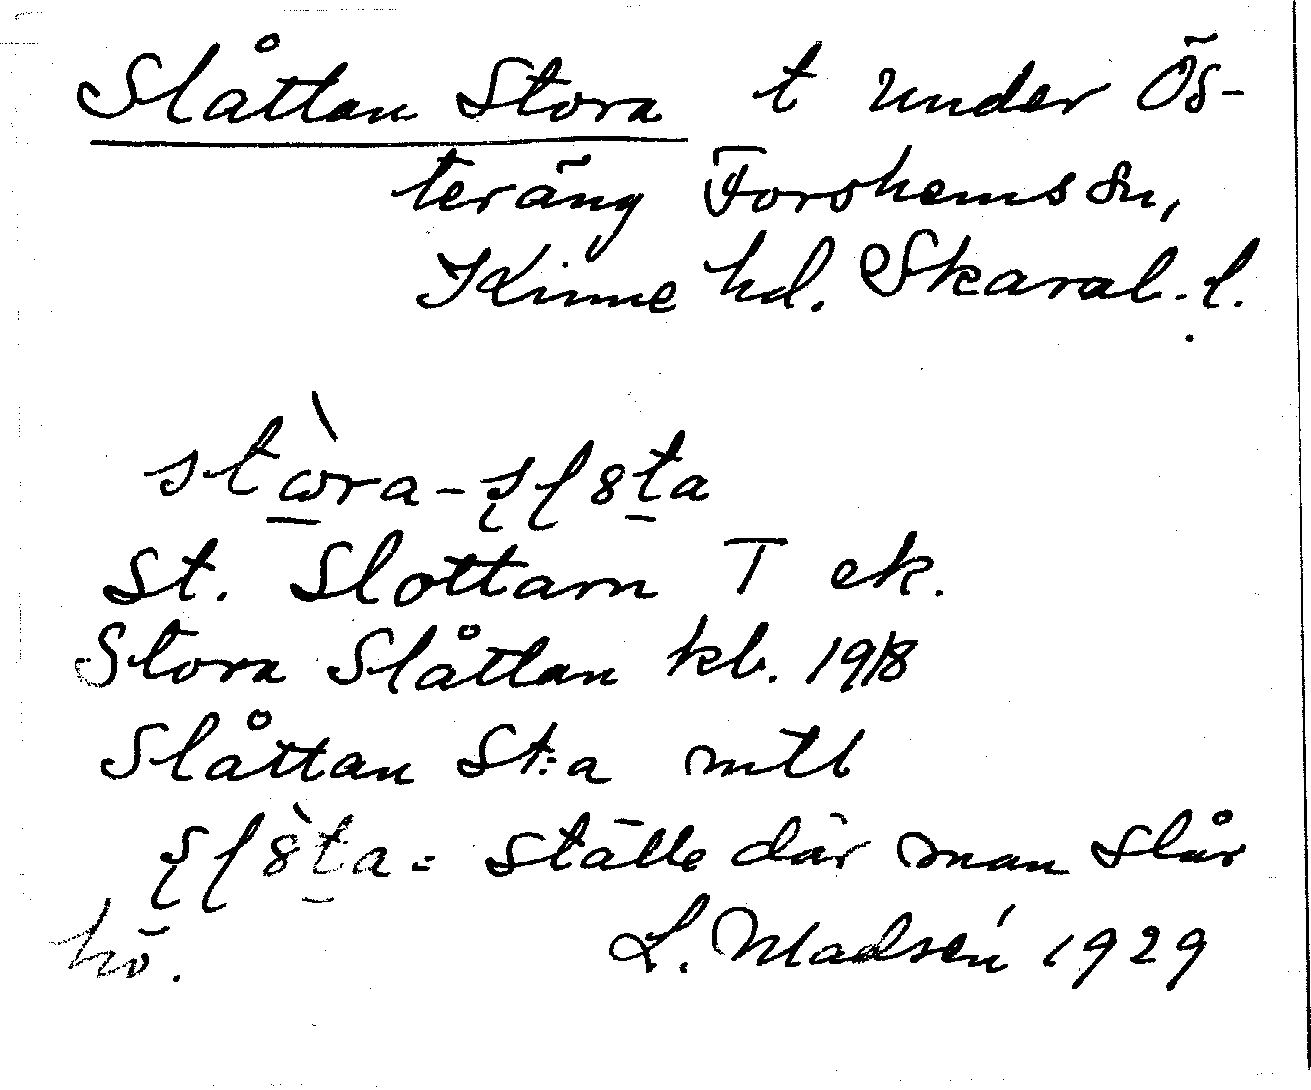 Slåttan Stora t under Ös-
teräng Forshems sn,
Kinne hd. Skarab. l.
stωra-ʂɭ8ta
St. Slottarn T ek.
Stora Slåttan kb. 1918
Slåttan St:a mtl
ʂɭ8̀ta = ställe där man slår
hö. L. Madsén 1929